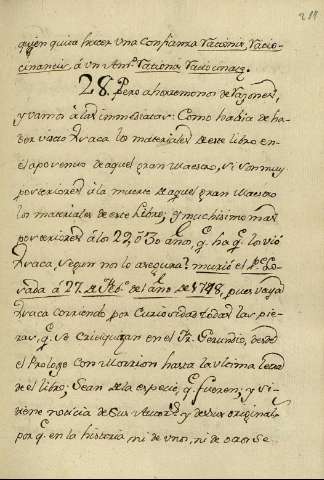 211
quien quita hacer una confianza
á un Am.º
28. Pero ahorremonos de razones,
y vamos á las inmediatas: Como habia de ha-
ber visto Araca los materiales de este libro en
el aposento de aquel gran Maestro, si son muy
posteriores á la muerte de aquel gran Maestro
los materiales de este Libro; y muchisimo mas
posteriores á los 22, ó 30 años, q.e ha q.e los vió
Araca, segun nos lo asegura? murió el P.e Lo-
sada á 27 de del año de 1748, pues vaya
Araca corriendo por curiosidad todas las pie-
zas, q.e se critiquizan en el Fr. Gerundio, desde
el Prologo con Morrion hasta la ultima letra
de el libro; sean de la especie, q.e fueren; y si
tiene noticia de sus Autores y de sus originales
por q.e en la historia ni de unos, ni de otros se